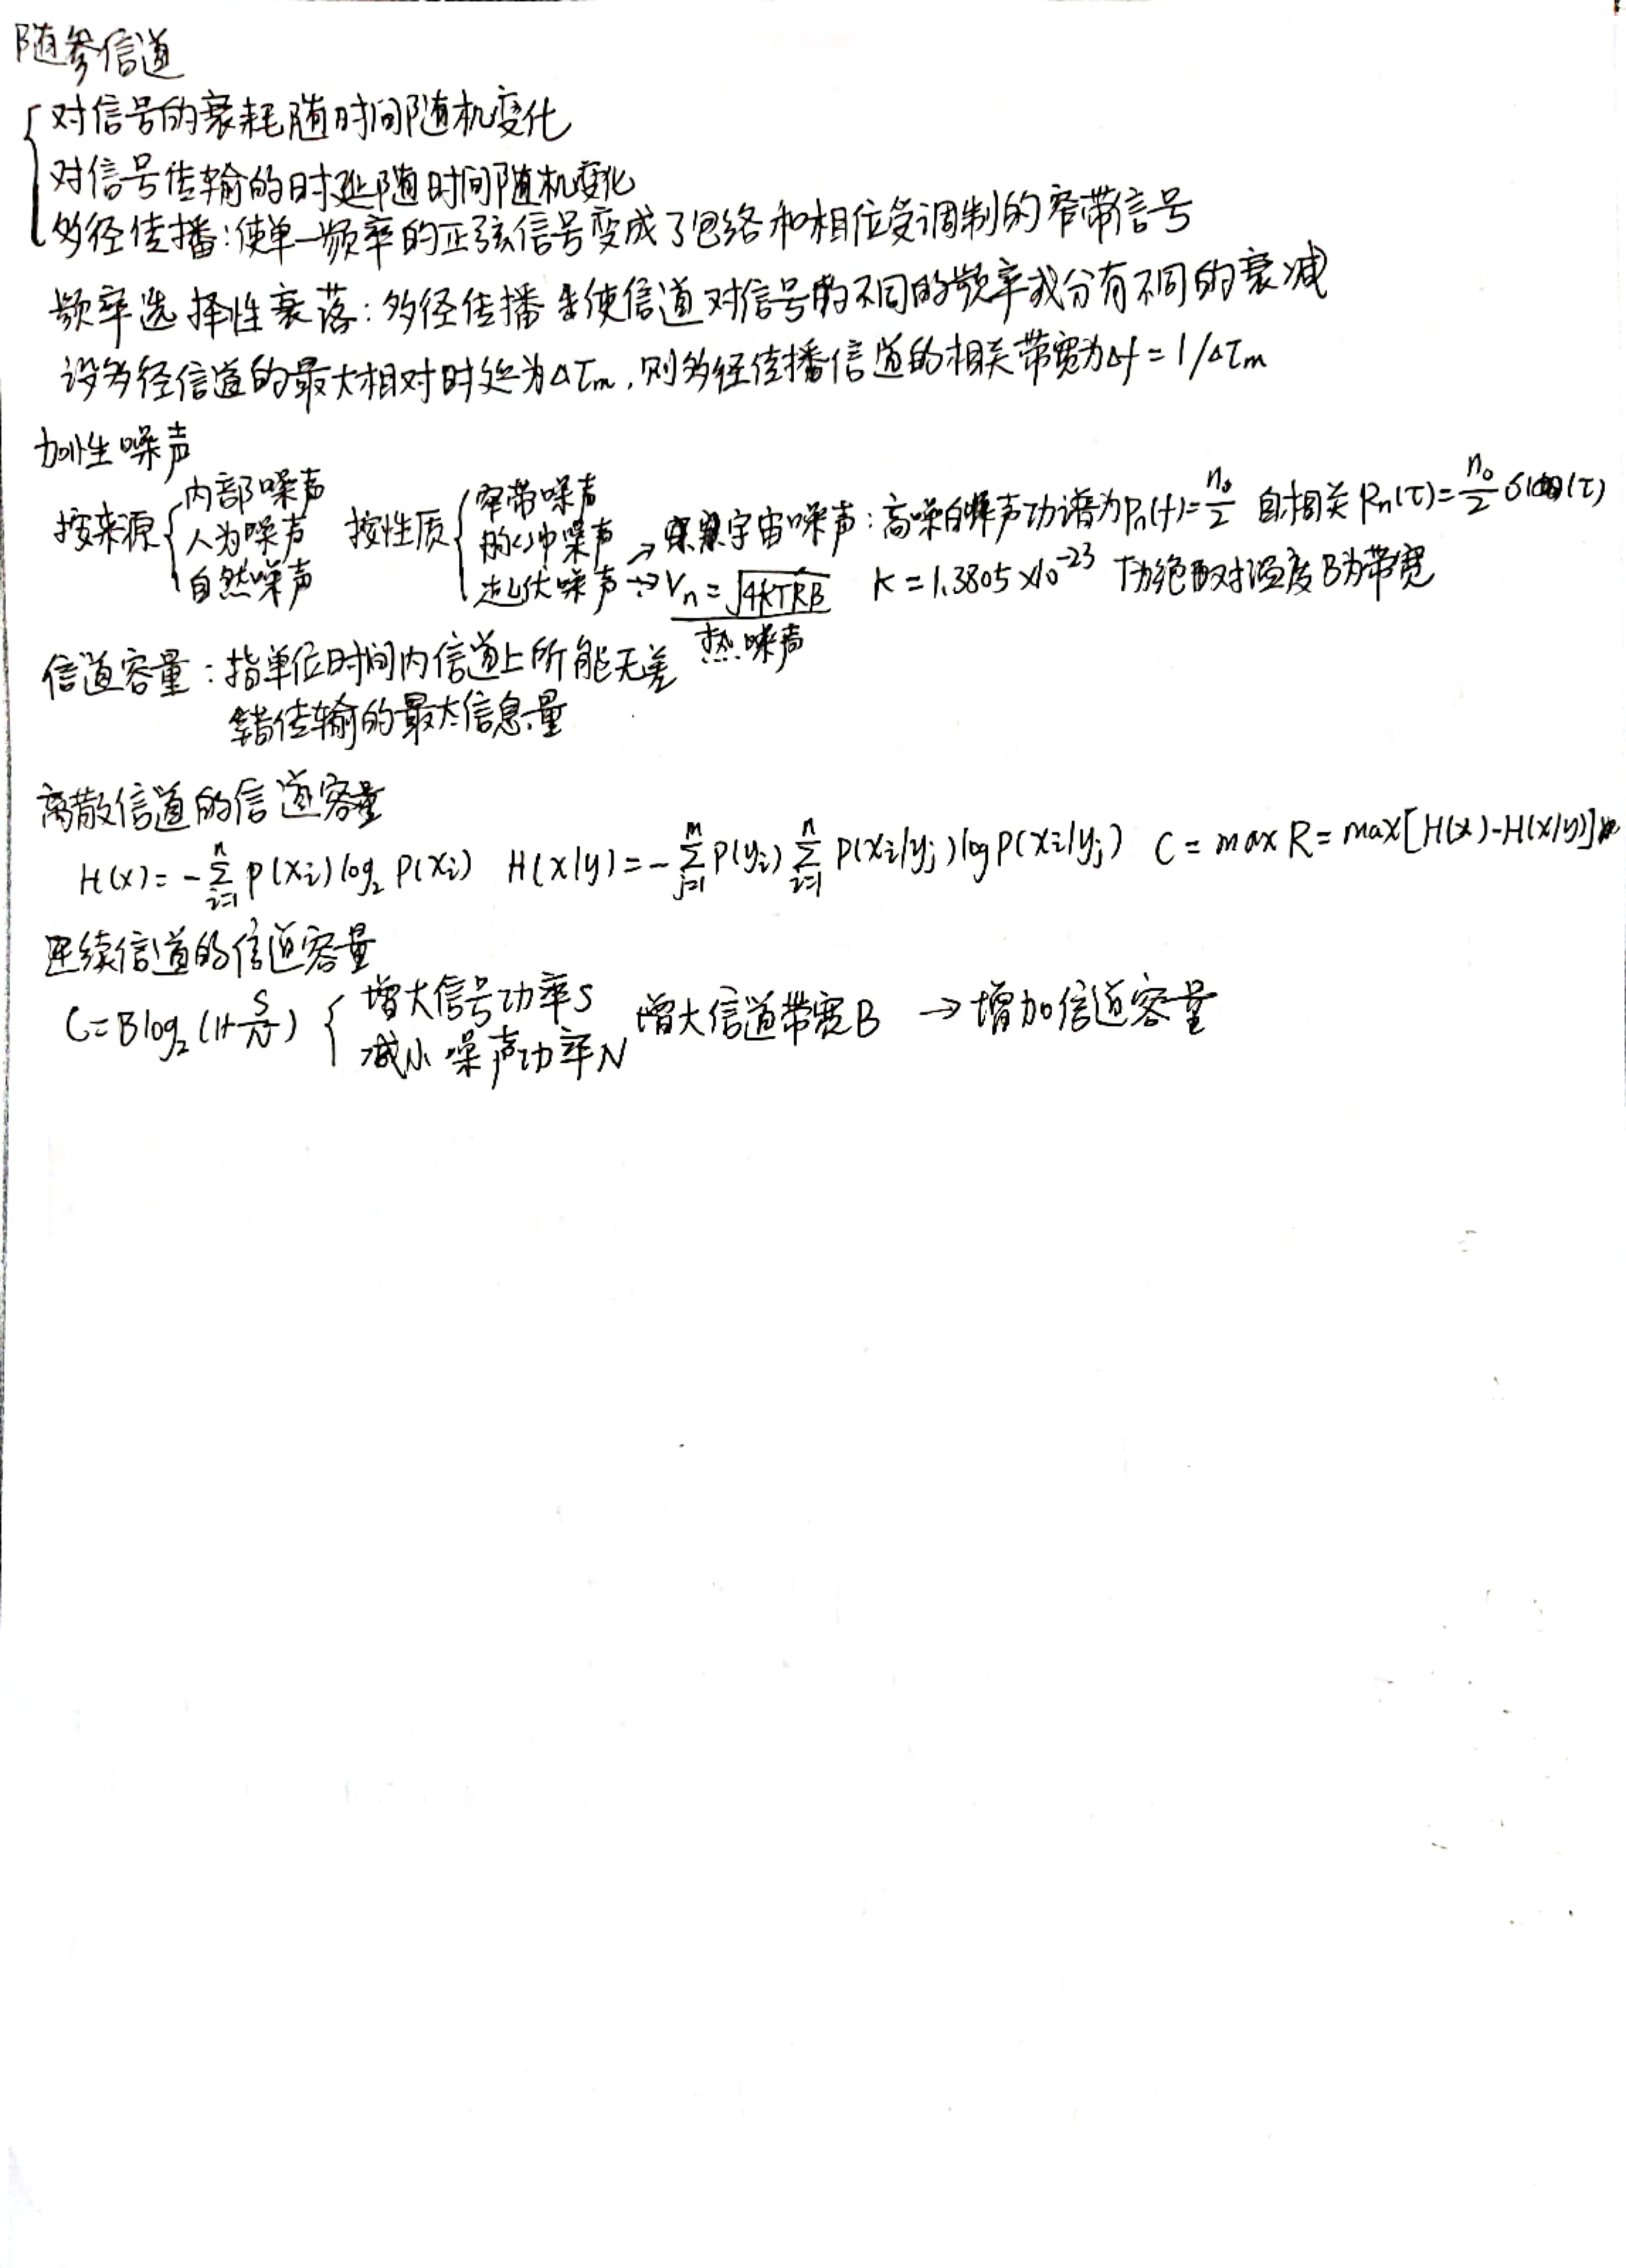 随参信道
对信号的衰耗随时间随机变化
对信号传输的时延随时间随机变化
多径传播:使单一频率的正弦信号变成了包络和相位受调制的窄带信号
频率选择性衰落:多径传播使信道对信号的不同的频率成分有不同的衰减
设多径信道的最大相对时延为Δτm,则多径传播信道的相关带宽为Δf=1/Δτm
加性噪声
按来源 { 内部噪声 人为噪声 自然噪声
按性质 { 窄带噪声 脉冲噪声 起伏噪声
→ 宇宙噪声:高噪白噪声功谱为Pn(f)=n0/2 自相关Rn(τ)=n0/2 δ(τ)
→ Vn=√4kTRB 热噪声 K=1.3805×10^-23 T为绝对温度B为带宽
信道容量:指单位时间内信道上所能无差
错传输的最大信息量
离散信道的信道容量
H(x)=-∑(i=1→n) P(xi)log2 P(xi) H(x/y)=-∑(j=1→m) P(yi) ∑(i=1→n) P(xi/yj)logP(xi/yj) C=max R=max[H(x)-H(x/y)]
连续信道的信道容量
C=Blog2(1+S/N) { 增大信号功率S 减小噪声功率N 增大信道带宽B → 增加信道容量